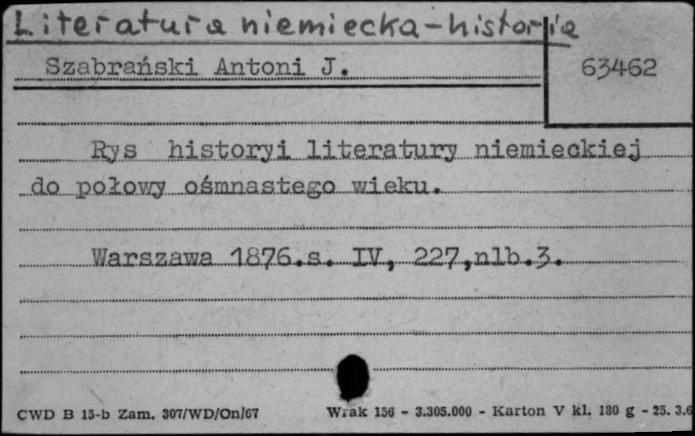 Literatura niemiecka-historia
Szabrański Antoni J.
63462
Rys historyi literatury niemieckiej
do połowy ośmnastego wieku.
Warszawa 1876.s. IV, 227,nlb.3.
CWD B 15-b Zam. 307/WD/On/67
Wrak 156 - 3.305.000 - Karton V kl. 180 g - 25. 3.6